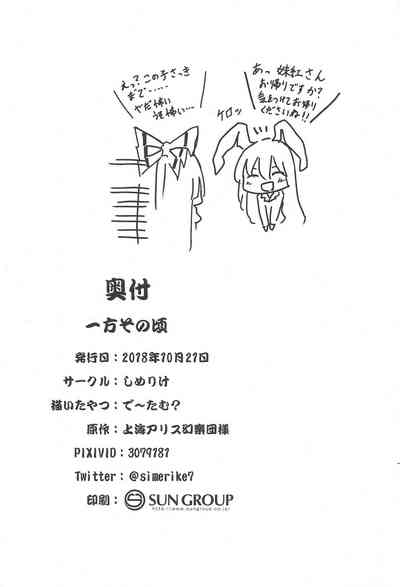 あっ 妹紅さん
お帰りですか?
気をつけてお帰り
くださいね!!
ケロッ
えっ?この子さっき
まで……
やだ怖い
奥付
一方その頃
発行日:2018年10月21日
サークル:しめりけ
描いたやつ:で〜たむ?
原作:上海アリス幻樂団様
PIXIVID:3079181
Twitter:@simerike7
印刷:SUN GROUP
http://www.sungroup.co.jp/